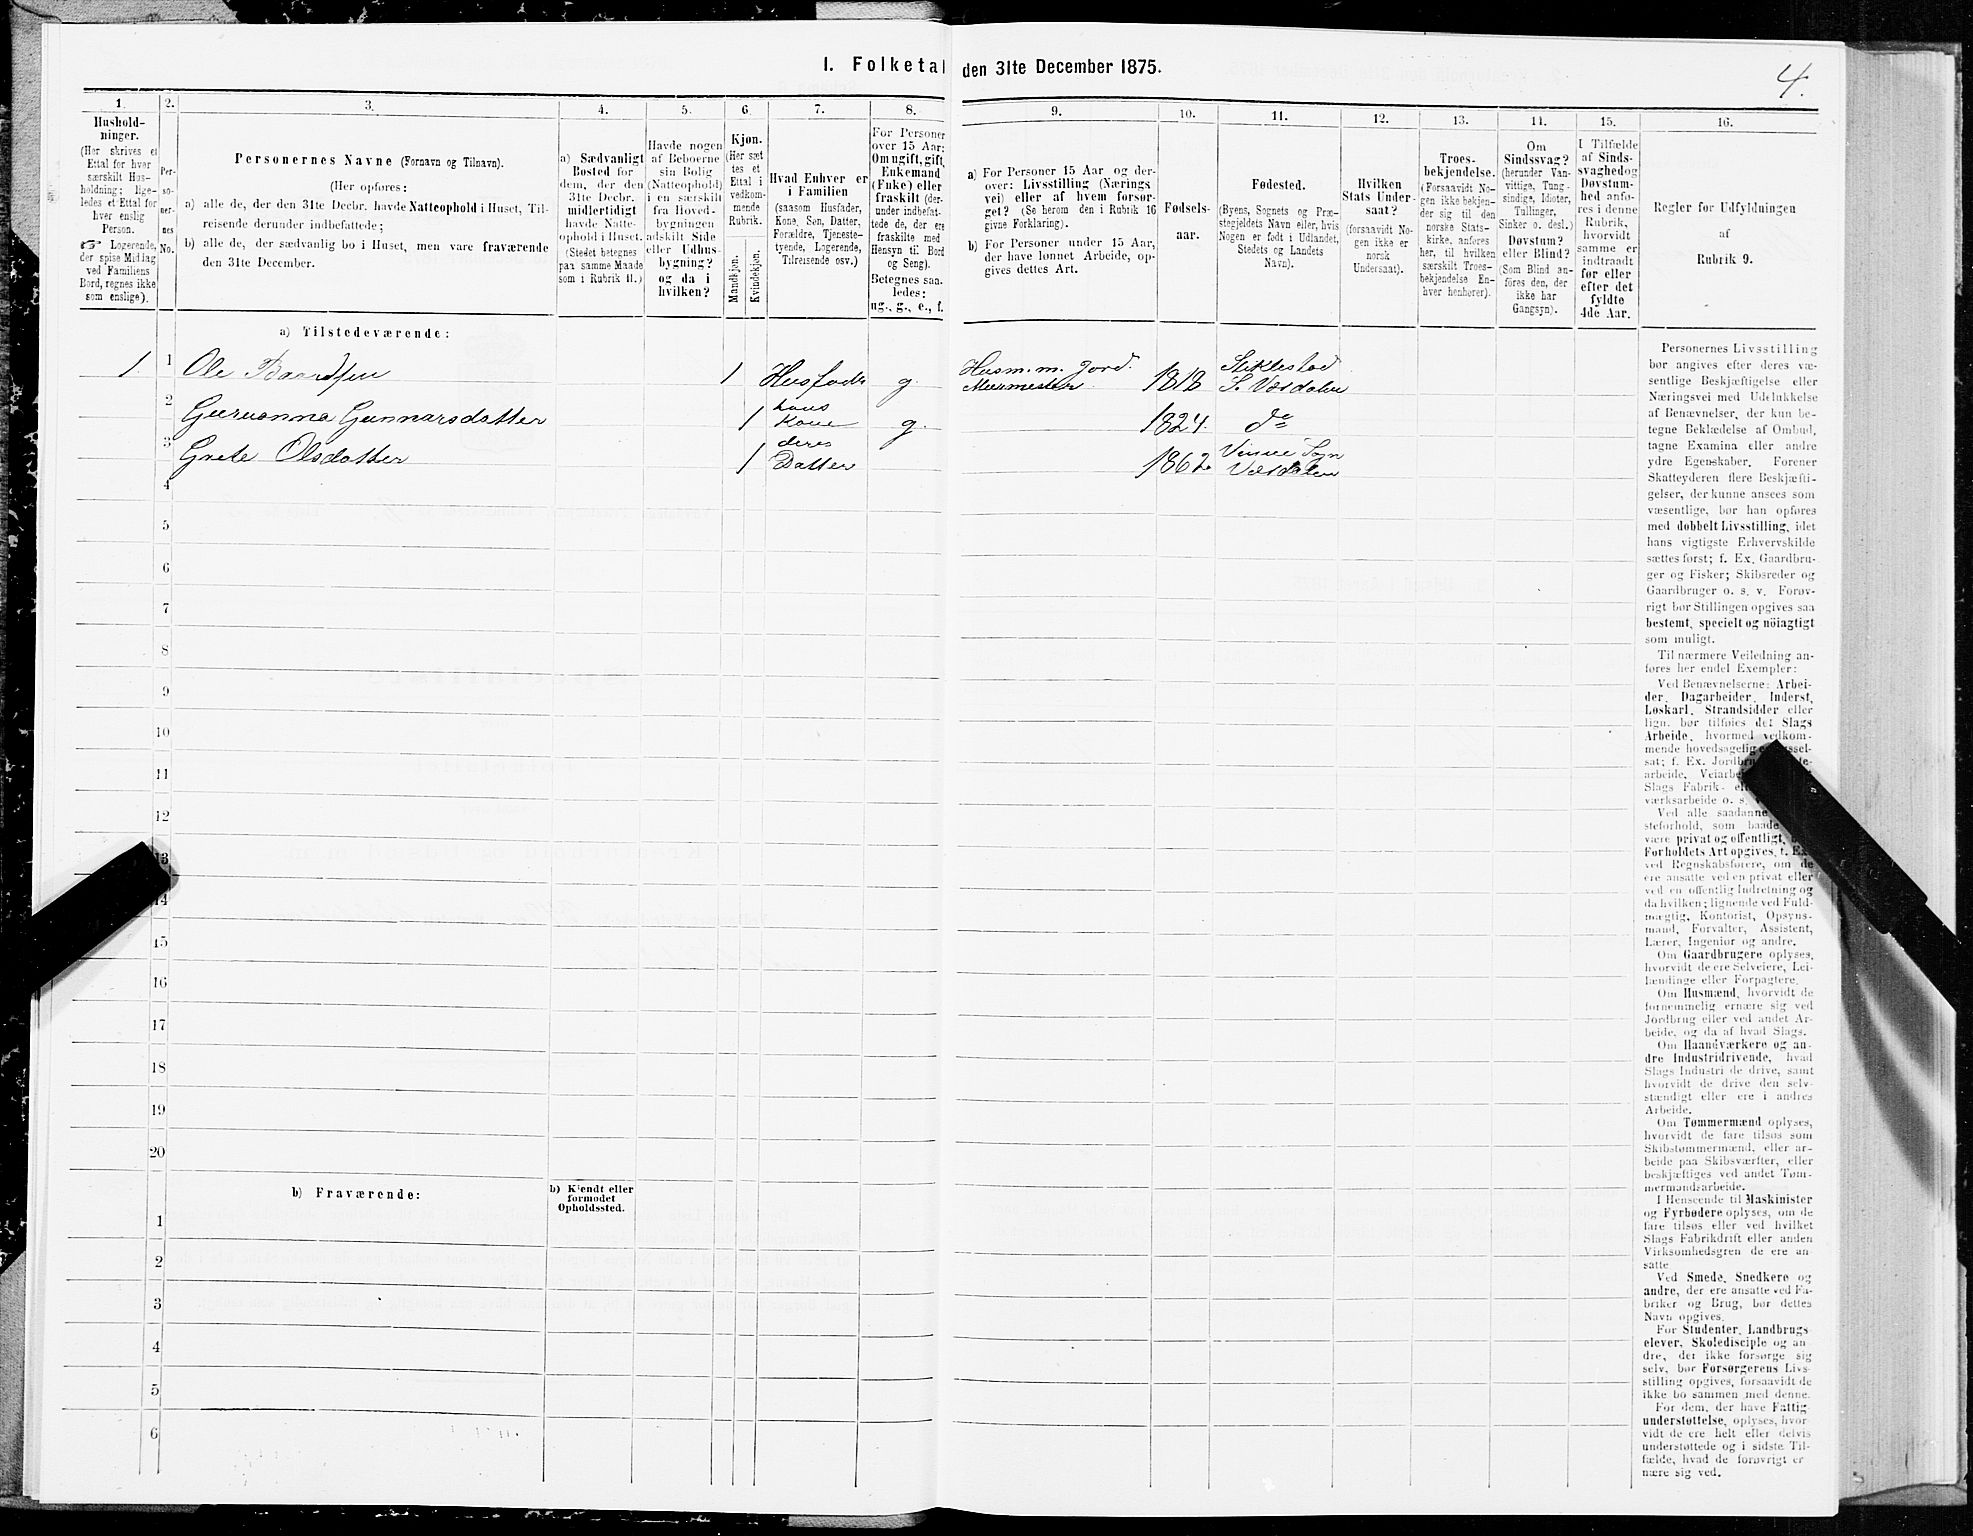 I. Folketal den 31te December 1875.
4.
1.
2.
3.
4.
5.
6.
7.
8.
9.
10.
11.
12.
13.
14.
15.
16.
Hushold-
ninger.
(Her skrives et
Ettal for hver
særskilt Hus-
holdning; lige-
ledes et Ettal for
hver enslig
Person.
☞ Logerende,
der spise Middag
ved Familiens
Bord, regnes ikke
som enslige).
Per-
so-
ner-
nes
No.
Personernes Navne (Fornavn og Tilnavn).
(Her opføres:
a) alle de, der den 31te Decbr. havde Natteophold i Huset, Til-
reisende derunder indbefattede;
b) alle de, der sædvanlig bo i Huset, men vare fraværende
den 31te December.
a) Sædvanligt
Bosted for
dem, der den
31te Decbr.
midlertidigt
havde Natte-
ophold i Huset.
(Stedet betegnes
paa samme Maade
som i Rubrik 11.)
Havde nogen
af Beboerne
sin Bolig
(Natteophold)
i en særskilt
fra Hoved-
bygningen
adskilt Side
eller Udhus-
bygning?
og da i
hvilken?
Kjøn.
(Her sæt
tes et
Ettal i
vedkom-
mende
Rubrik.
Mandkjøn.
Kvindekjøn.
Hvad Enhver er
i Familien
(saasom Husfader,
Kone, Søn, Datter,
Forældre, Tjeneste-
tyende, Logerende,
Tilreisende osv.)
For Personer
over 15 Aar:
Om ugift, gift,
Enkemand
(Enke) eller
fraskilt (der-
under indbefat-
tede de, der ere
fraskilte med
Hensyn til Bord
og Seng).
Betegnes saa-
ledes:
ug., g., e., f.
a) For Personer 15 Aar og der-
over: Livsstilling (Nærings
vei) eller af hvem forsør-
get? (Se herom den i Rubrik 16
givne Forklaring).
b) For Personer under 15 Aar,
der have lønnet Arbeide, op-
gives dettes Art.
Fødsels-
aar.
Fødested.
(Byens, Sognets og Præ-
stegjeldets Navn eller, hvis
Nogen er født i Udlandet,
Stedets og Landets
Navn).
Hvilken
Stats Under-
saat?
(forsaavidt No-
gen ikke er
norsk
Undersaat).
Troes-
bekjendelse.
(Forsaavidt No-
gen ikke bekjen-
der sig til den
norske Stats-
kirke, anføres
her, til hvilken
særskilt Troes-
bekjendelse En-
hver henhører).
Om
Sindssvag?
(herunder Van-
vittige, Tung-
sindige, Idioter,
Tullinger,
Sinker o. desl.)
Døvstum?
eller Blind?
(Som Blind an-
føres den, der
ikke har
Gangsyn).
I Tilfælde
af Sinds-
svaghed og
Døvstum-
hed anfø-
res i denne
Rubrik,
hvorvidt
samme er
indtraadt
før eller
efter det
fyldte
4de Aar.
Regler for Udfyldningen
af
Rubrik 9.
a) Tilstedeværende:
1 1 Ole Baardsen 1 Husfader g. Husm. m. Jord. Muurmester. 1818 Stiklestad S. Værdalen
2 Guruanna Gunnarsdatter 1 hans Kone g. 1824. do
3 Grete Olsdatter 1 deres Datter 1862 Vinne Sogn Værdalen
4
5
6
7
8
9
10
11
12
13
14
15
16
17
18
19
20
b) Fraværende:
b) Kjendt eller
formodet
Opholdssted.
1
2
3
4
5
6
Personernes Livsstilling
bør angives efter deres væ-
sentlige Beskjæftigelse eller
Næringsvei med Udelukkelse
af Benævnelser, der kun be-
tegne Beklædelse af Ombud,
tagne Examina eller andre
ydre Egenskaber. Forener
Skatteyderen flere Beskjæfti-
gelser, der kunne ansees som
væsentlige, bør han opføres
med dobbelt Livsstilling, idet
hans vigtigste Erhvervskilde
sættes først; f. Ex. Gaardbru-
ger og Fisker; Skibsreder og
Gaardbruger o. s. v. Forøv-
rigt bør Stillingen opgives saa
bestemt, specielt og nöiagtigt
som muligt.
Til nærmere Veiledning an-
føres her endel Exempler:
Ved Benævnelserne: Arbei-
der, Dagarbeider, Inderst,
Løskarl, Strandsidder eller
lign. bør tilføies det Slags
Arbeide, hvormed vedkom-
mende hovedsagelig
sat; f. Ex.
arbeide,
Slags Fabrik-
værksarbeide o. s.
Ved alle saadanne
steforhold, som baade
være privat og offentligt,
Forholdets Art opgives, f. Ex.
ved Regnskabsførere, om de
ere ansatte ved en privat eller
ved en offentlig Indretning og
da hvilken; lignende ved Fuld-
mægtig, Kontorist, Opsyns-
mand, Forvalter, Assistent,
Lærer, Ingeniør og andre.
Om Gaardbrugere oplyses,
hvorvidt de ere Selveiere, Lei-
lændinge eller Forpagtere.
Om Husmænd, hvorvidt de
fornemmelig ernære sig ved
Jordbrug eller ved andet Ar-
beide, og da af hvad Slags.
Om Haandværkere og an-
dre Industridrivende, hvad
Slags Industri de drive, samt
hvorvidt de drive den selv-
stændigt eller ere i andres
Arbeide.
Om Tømmermænd oplyses,
hvorvidt de fare tilsøs som
Skibstømmermænd, eller ar-
beide paa Skibsværfter, eller
beskjæftiges ved andet Tøm-
mermandsarbeide.
I Henseende til Maskinister
og Fyrbødere oplyses, om de
fare tilsøs eller ved hvilket
Slags Fabrikdrift eller anden
Virksomhedsgren de ere an-
satte
Ved Smede, Snedkere og
andre, der ere ansatte ved Fa-
briker og Brug, bør dettes
Navn opgives.
For Studenter, Landbrugs-
elever, Skoledisciple og an-
dre, der ikke forsørge sig
selv, bør Forsørgerens Livs-
stilling opgives, forsaavidt de
ikke bo sammen med denne.
For dem, der have Fattig-
understøttelse, oplyses, hvor-
vidt de ere helt eller delvis
understøttede og i sidste Til-
fælde, hvad de forøvrigt er
nære sig ved.